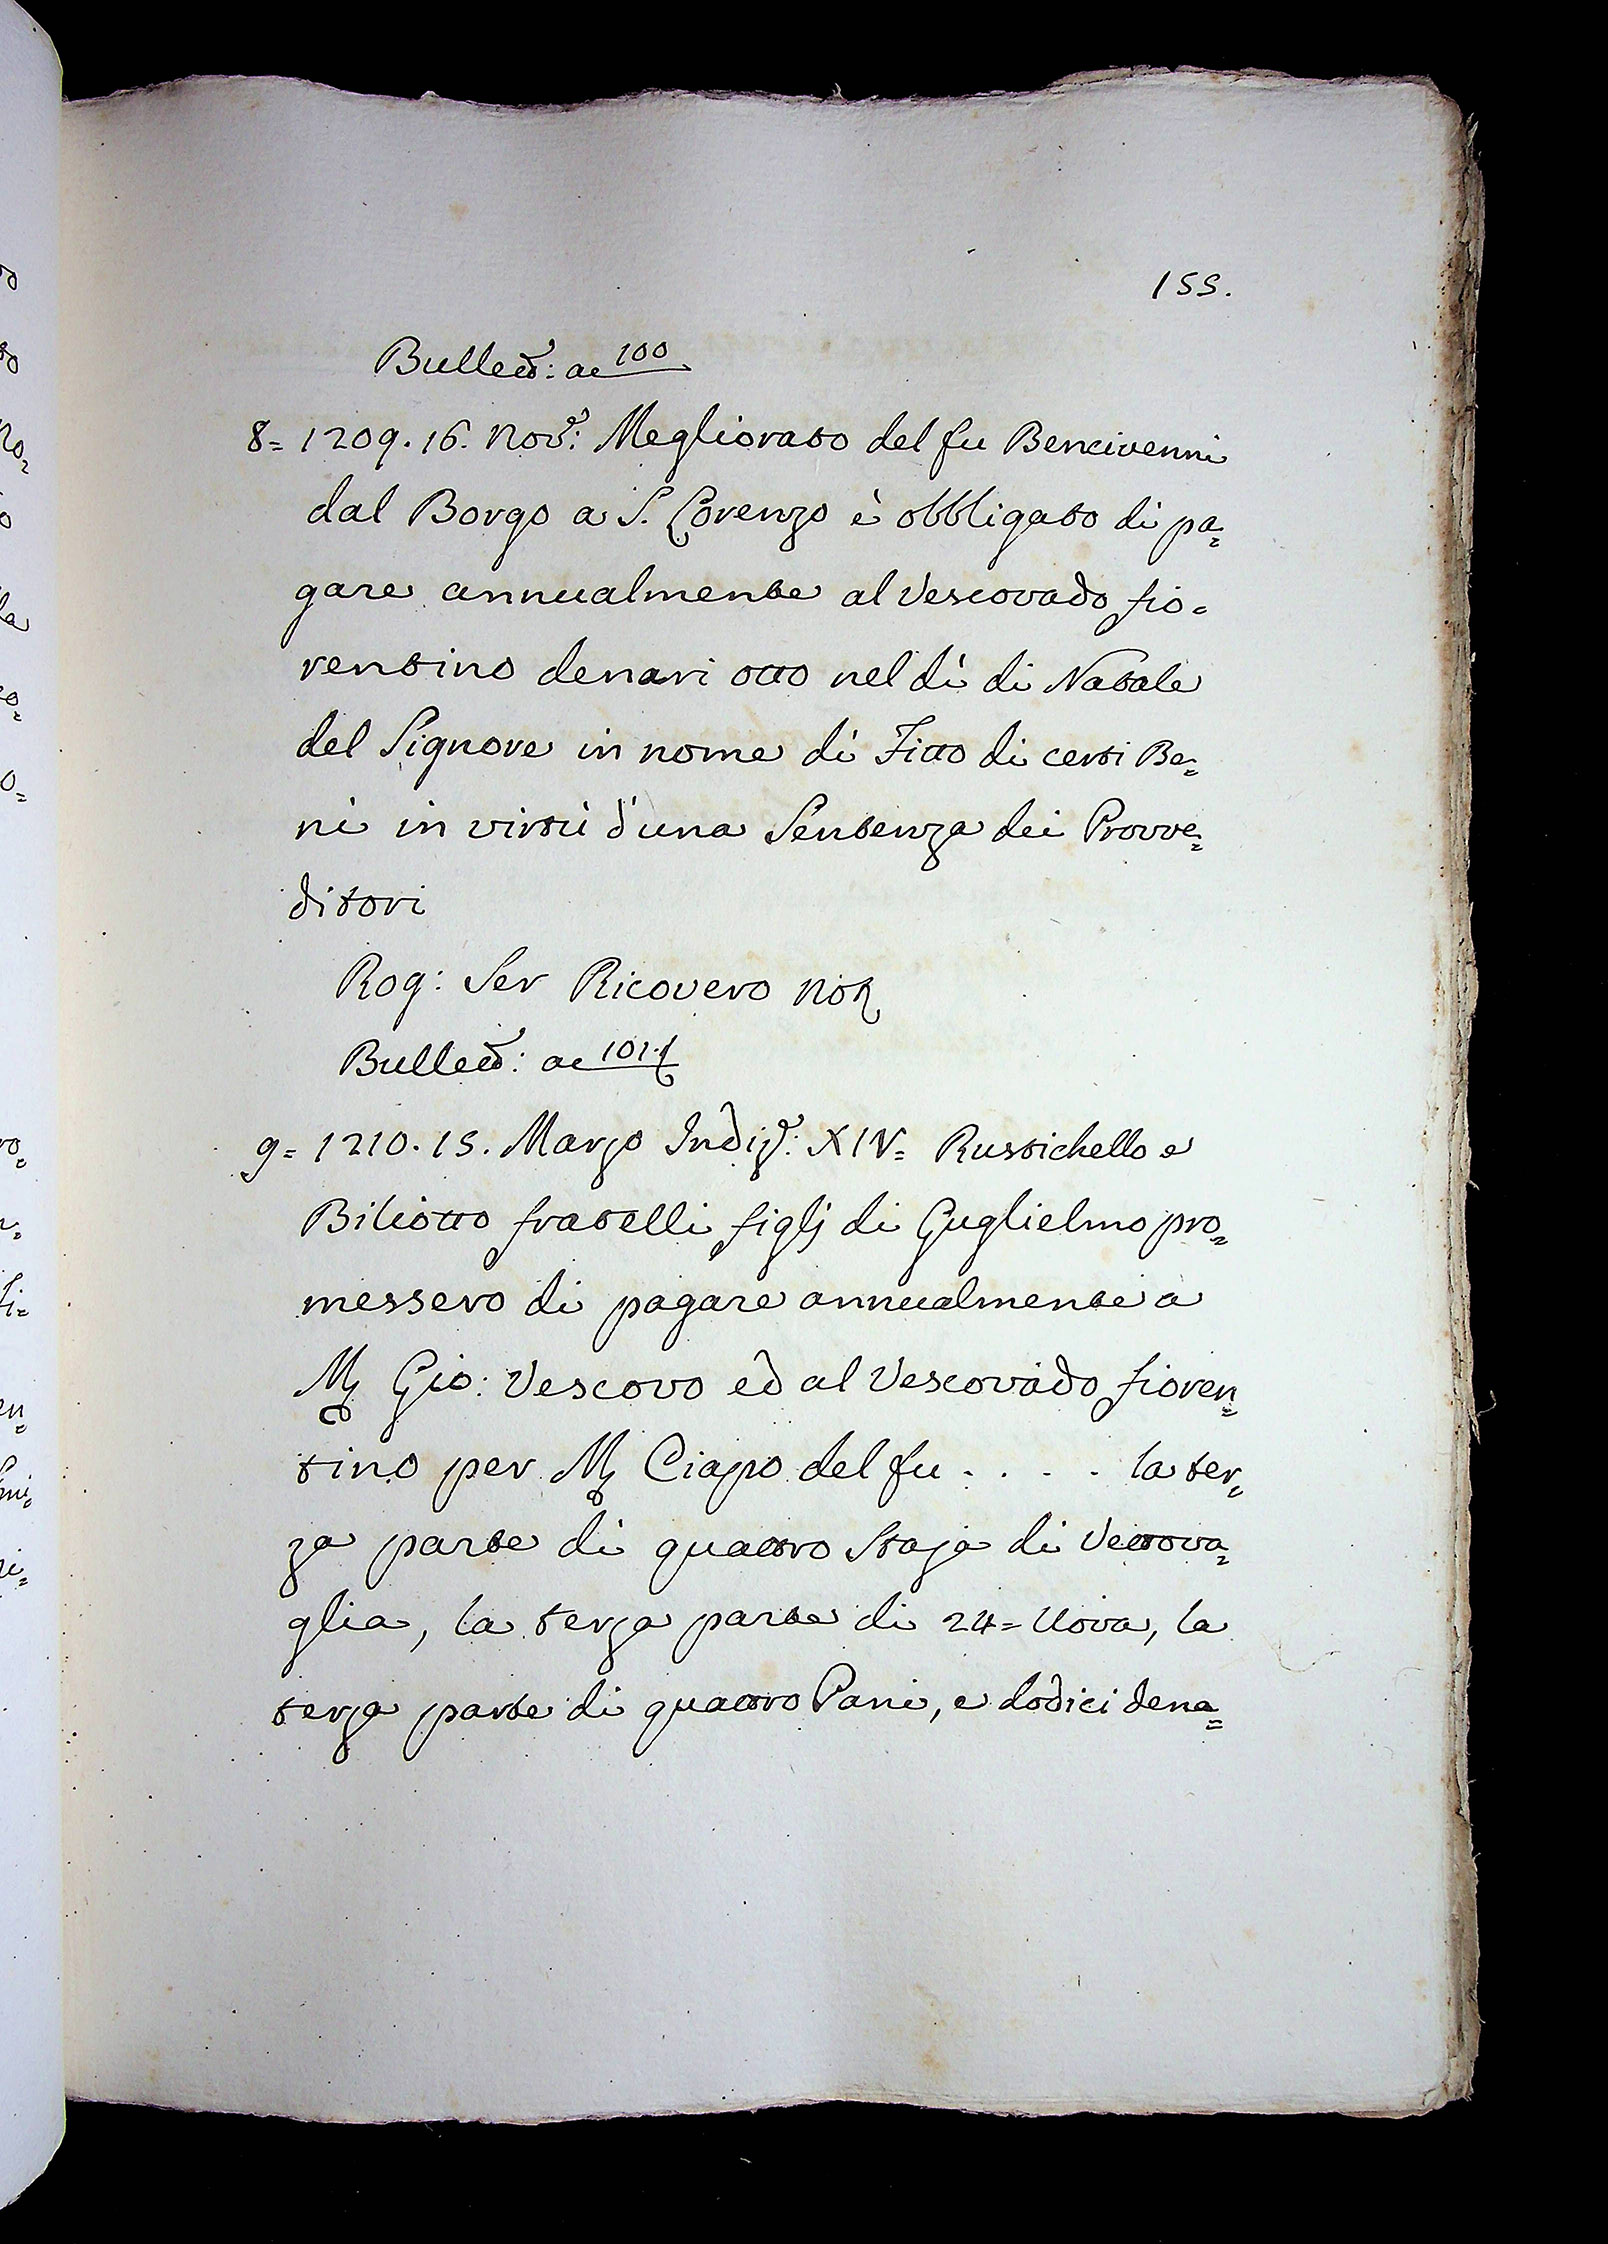 155.
Bullett.e: ac 100
8= 1209. 16. Nov.e: Megliorato del fu Bencivenni
dal Borgo a S. Lorenzo è obbligato di pa=
gare annualmente al Vescovado fio=
rentino denari otto nel dì di Natale
del Signore in nome di Fitto di certi Be=
ni in virtù d'una Sentenza dei Provve=
ditori
Rog: Ser Ricovero Not
Bullett.e: ac 101.t
9= 1210. 15. Marzo Indiz.e: XIV= Rustichello e
Biliotto fratelli figlj di Guglielmo pro=
messero di pagare annualmente a
M Gio: Vescovo ed al Vescovado fioren=
tino per M Ciapo del fu . . . . la ter=
za parte di quattro Staja di Vettova=
glia, la terza parte di 24= Uova, la
terza parte di quattro Pani, e dodici dena=